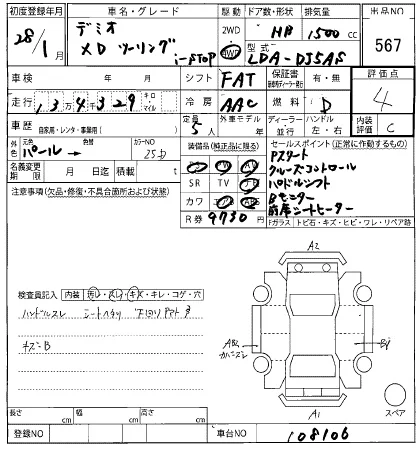 初度登録年月 車名・グレード 駆動 ドア数・形状 排気量 出品NO
28/1月 デミオ 2WD 4WD HB 1500cc 567
XD ツーリング i-STOP 型式 LDA-DJ5AS
車検 年 月 シフト FAT 保証書 有・無 評価点
走行 13万4千329 キロ・マイル 冷房 AAC 燃料 D 4
車歴 自家用・レンタ・事業用( ) 定員 5人 外車モデル 年 ディーラー 並行 ハンドル 左・右 内装評価 C
外色 元色 パール→ 色替 カラーNO 25D 装備品(純正品に限る) セールスポイント(正常に作動するもの)
名義変更期限 月 日迄 積載 t PS PW AW Pスタート
注意事項(欠品・修復・不具合箇所および状態) SR TV ナビ クルーズコントロール
カワ エアB ABS パドルシフト
R券 9730円 Bモニター
前席シートヒーター
Fガラス トビ石・キズ・ヒビ・ワレ・リペア跡
A2
検査員記入 内装 汚レ・スレ・キズ・キレ・コゲ・穴
ハンドルスレ シートヘタリ
キズ=B
A1
スペア
長さ cm 幅 cm 高さ cm
登録NO 車台NO 108106